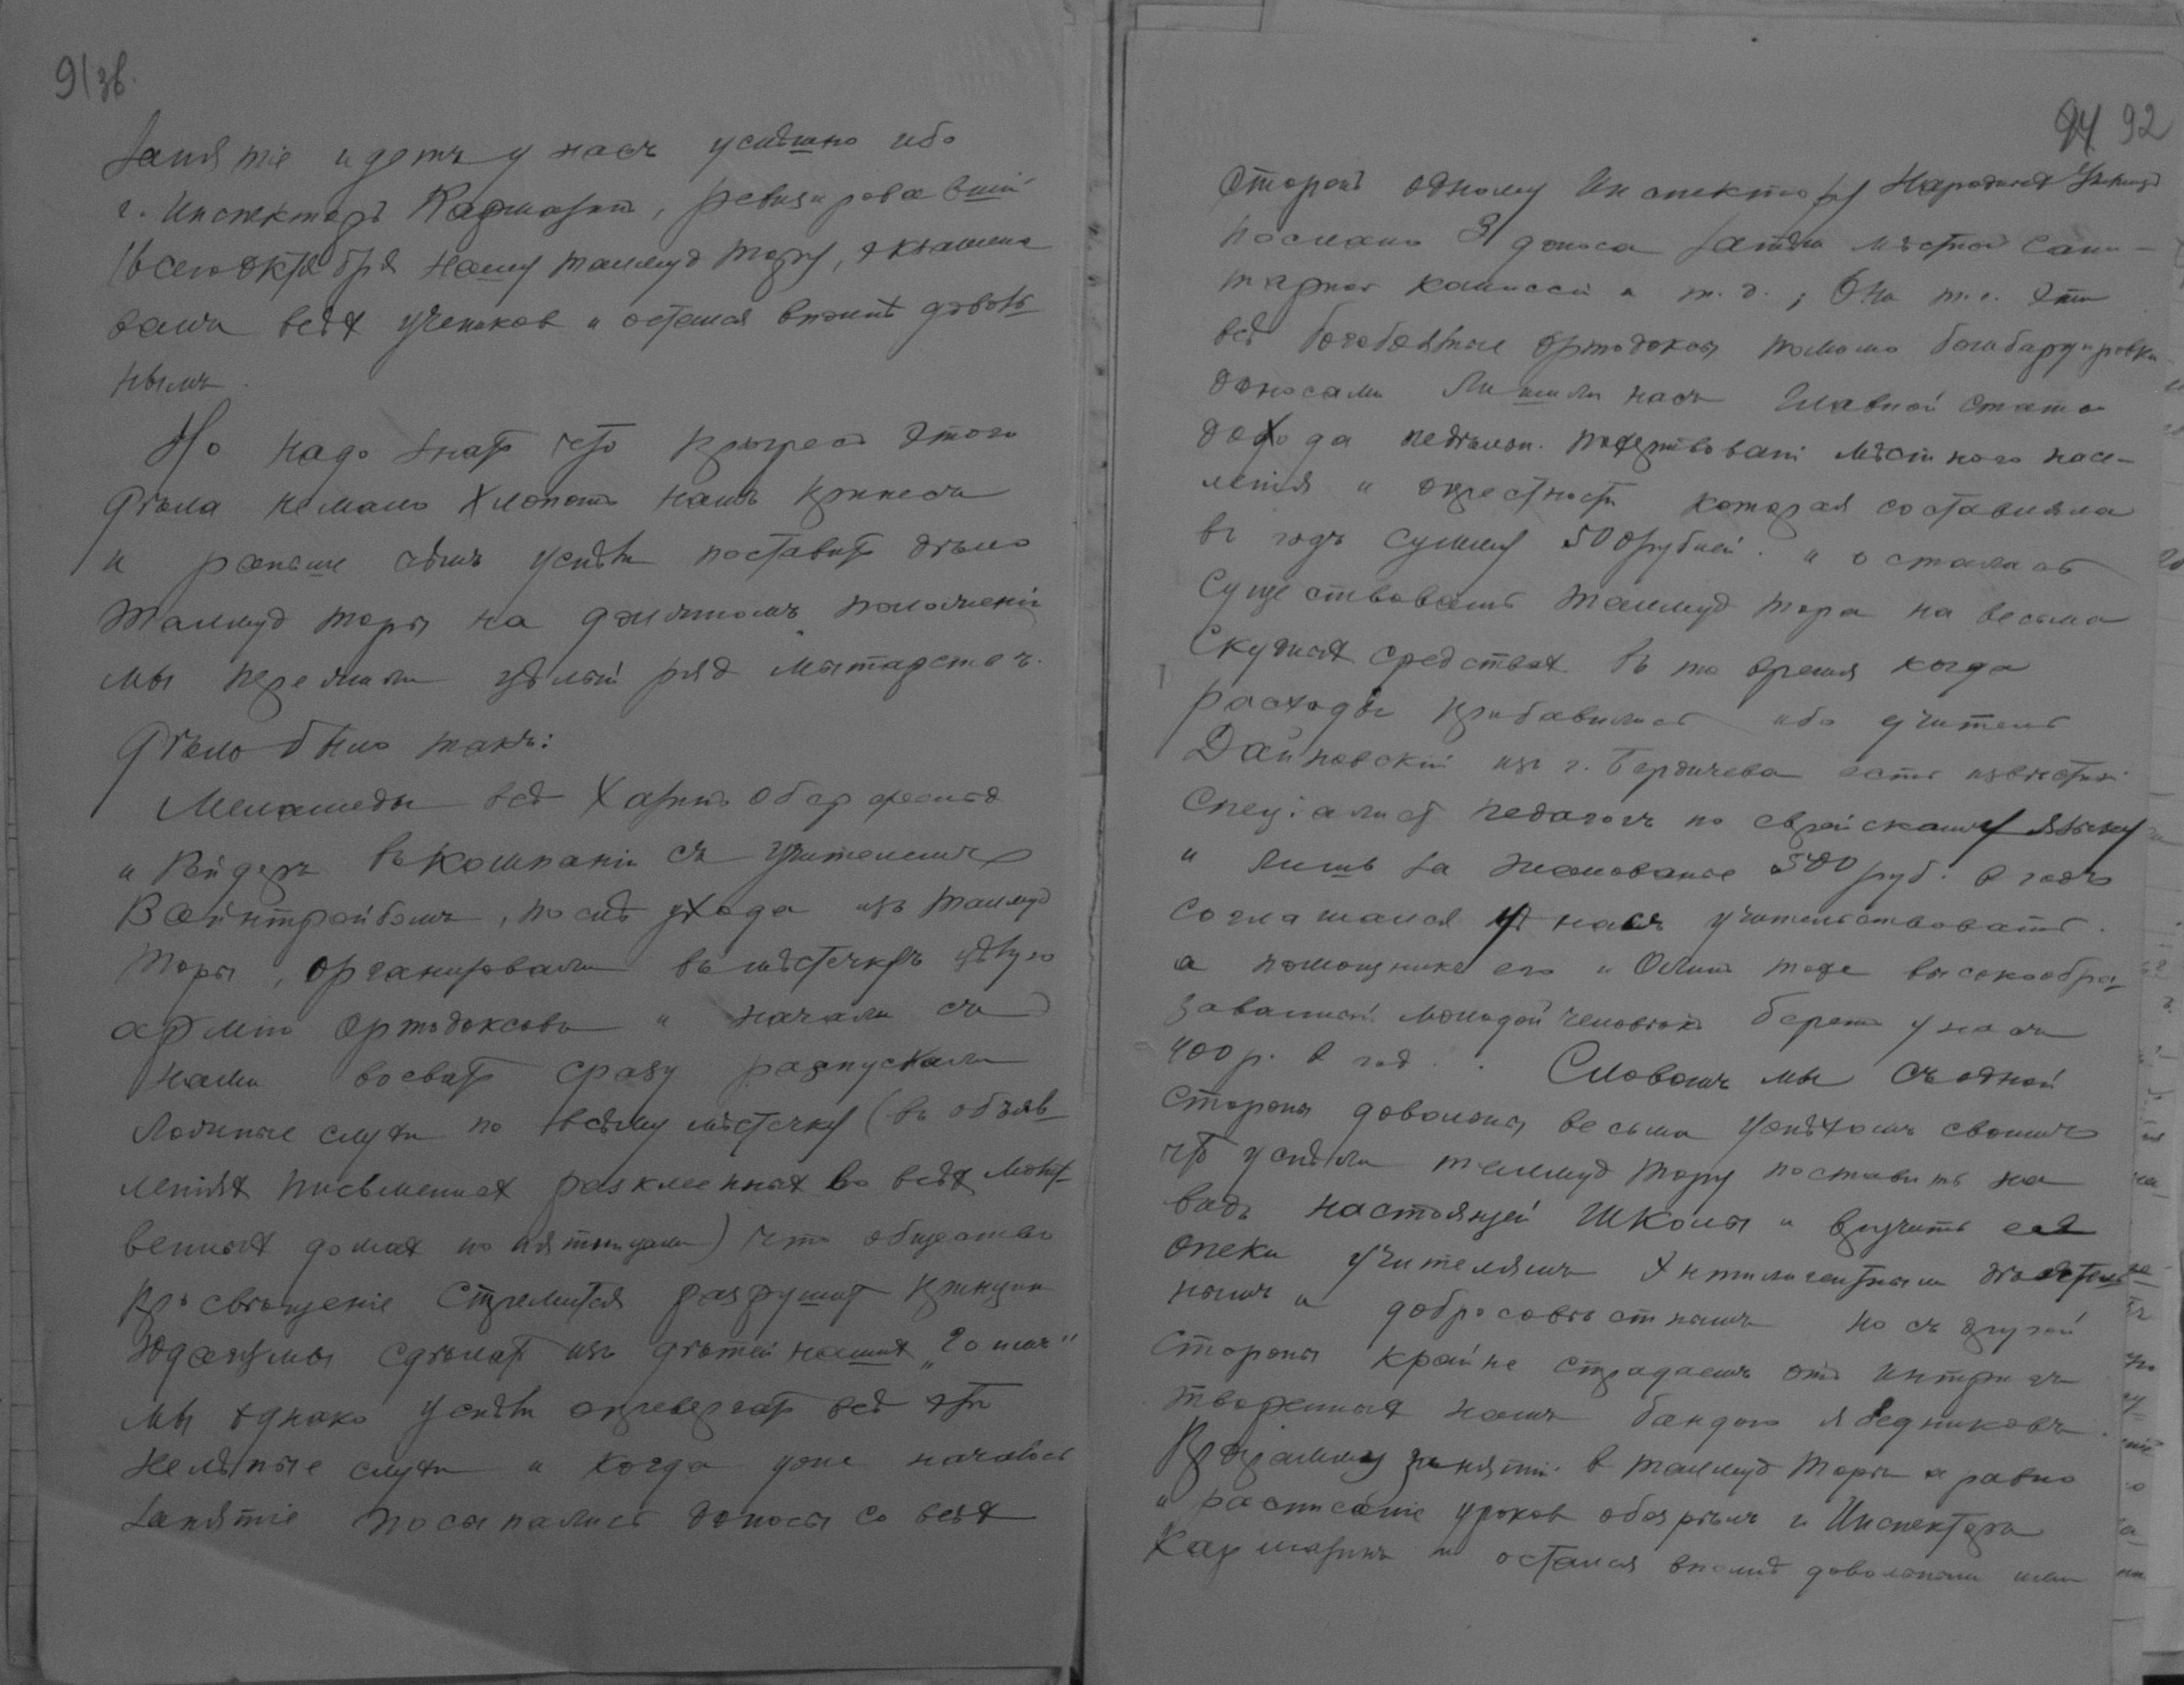 91 зв.
Занятіе идетъ у насъ успѣшно ибо
г. Инспекторъ, ревизировавшій
16 сего октября нашу талмуд тору, экзамено
валъ всѣх учеников и остался вполнѣ доволь
нымъ.
Но надо знать что прогресс этого
дѣла немало хлопотъ намъ принесъ
и раньше чѣмъ успѣли поставить дѣло
талмуд торы на должномъ положеніи
мы пережили цѣлый ряд мытарствъ.
Дѣло было такъ:
Меламеды всѣ
и Вайдеръ въ компаніи съ учителемъ
Вайнтройбомъ, послѣ ухода изъ талмуд
торы, организовали въ мѣстечкѣ цѣлую
армію ортодоксовъ и начали съ
нами воевать сразу распускали
ложные слухи по всѣму мѣстечку (въ объяв
леніях письменных расклеенных во всѣх молит
венных домах по пятницамъ) что общество
просвѣщеніе стремится разрушить принцип
юдаизмы сдѣлать изъ дѣтей наших „гоимъ"
мы однако успѣли опровергать всѣ эти
нелѣпые слухи и когда уже началось
занятіе посыпались доносы со всѣх
94 92
сторонъ одному Инспектору Народных Училищъ
послано 3 доноса затѣм мѣстной сани-
тарной комиссіи и т.д.; Они т.е. эти
всѣ богобоязные ортодоксы помимо бомбардировки
доносами лишили насъ главной статьи
дохода недѣльн. пожертвованій мѣстного насе-
ленія и окрестности которая составляла
въ годъ сумму 500 рублей. и осталась
существовать талмуд тора на весьма
скудных средствах въ то время когда
расходы прибавились ибо учитель
Дайновскій изъ г. Бердичева есть извѣстный
спеціалист педагогъ по еврейскому языку
и лишь за жалованье 500 руб. в годъ
согласился у насъ учительствовать.
а помощнике его тоже высокообра-
зованный молодой человѣкъ беретъ у насъ
400 р. в год. Словомъ мы съ одной
стороны довольны весьма успѣхомъ своимъ
что успѣли талмуд тору поставить на
видъ настоящей школы и вручить ея
опеки учителямъ интилигентнымъ дѣятель
нымъ и добросовѣстнымъ но съ другой
стороны крайне страдаемъ отъ интригъ
творенных намъ бандою ябедниковъ.
Программу занятій в талмуд торы а равно
и расписаніе уроков обозрѣлъ г. Инспекторъ
и остался вполнѣ довольнымъ